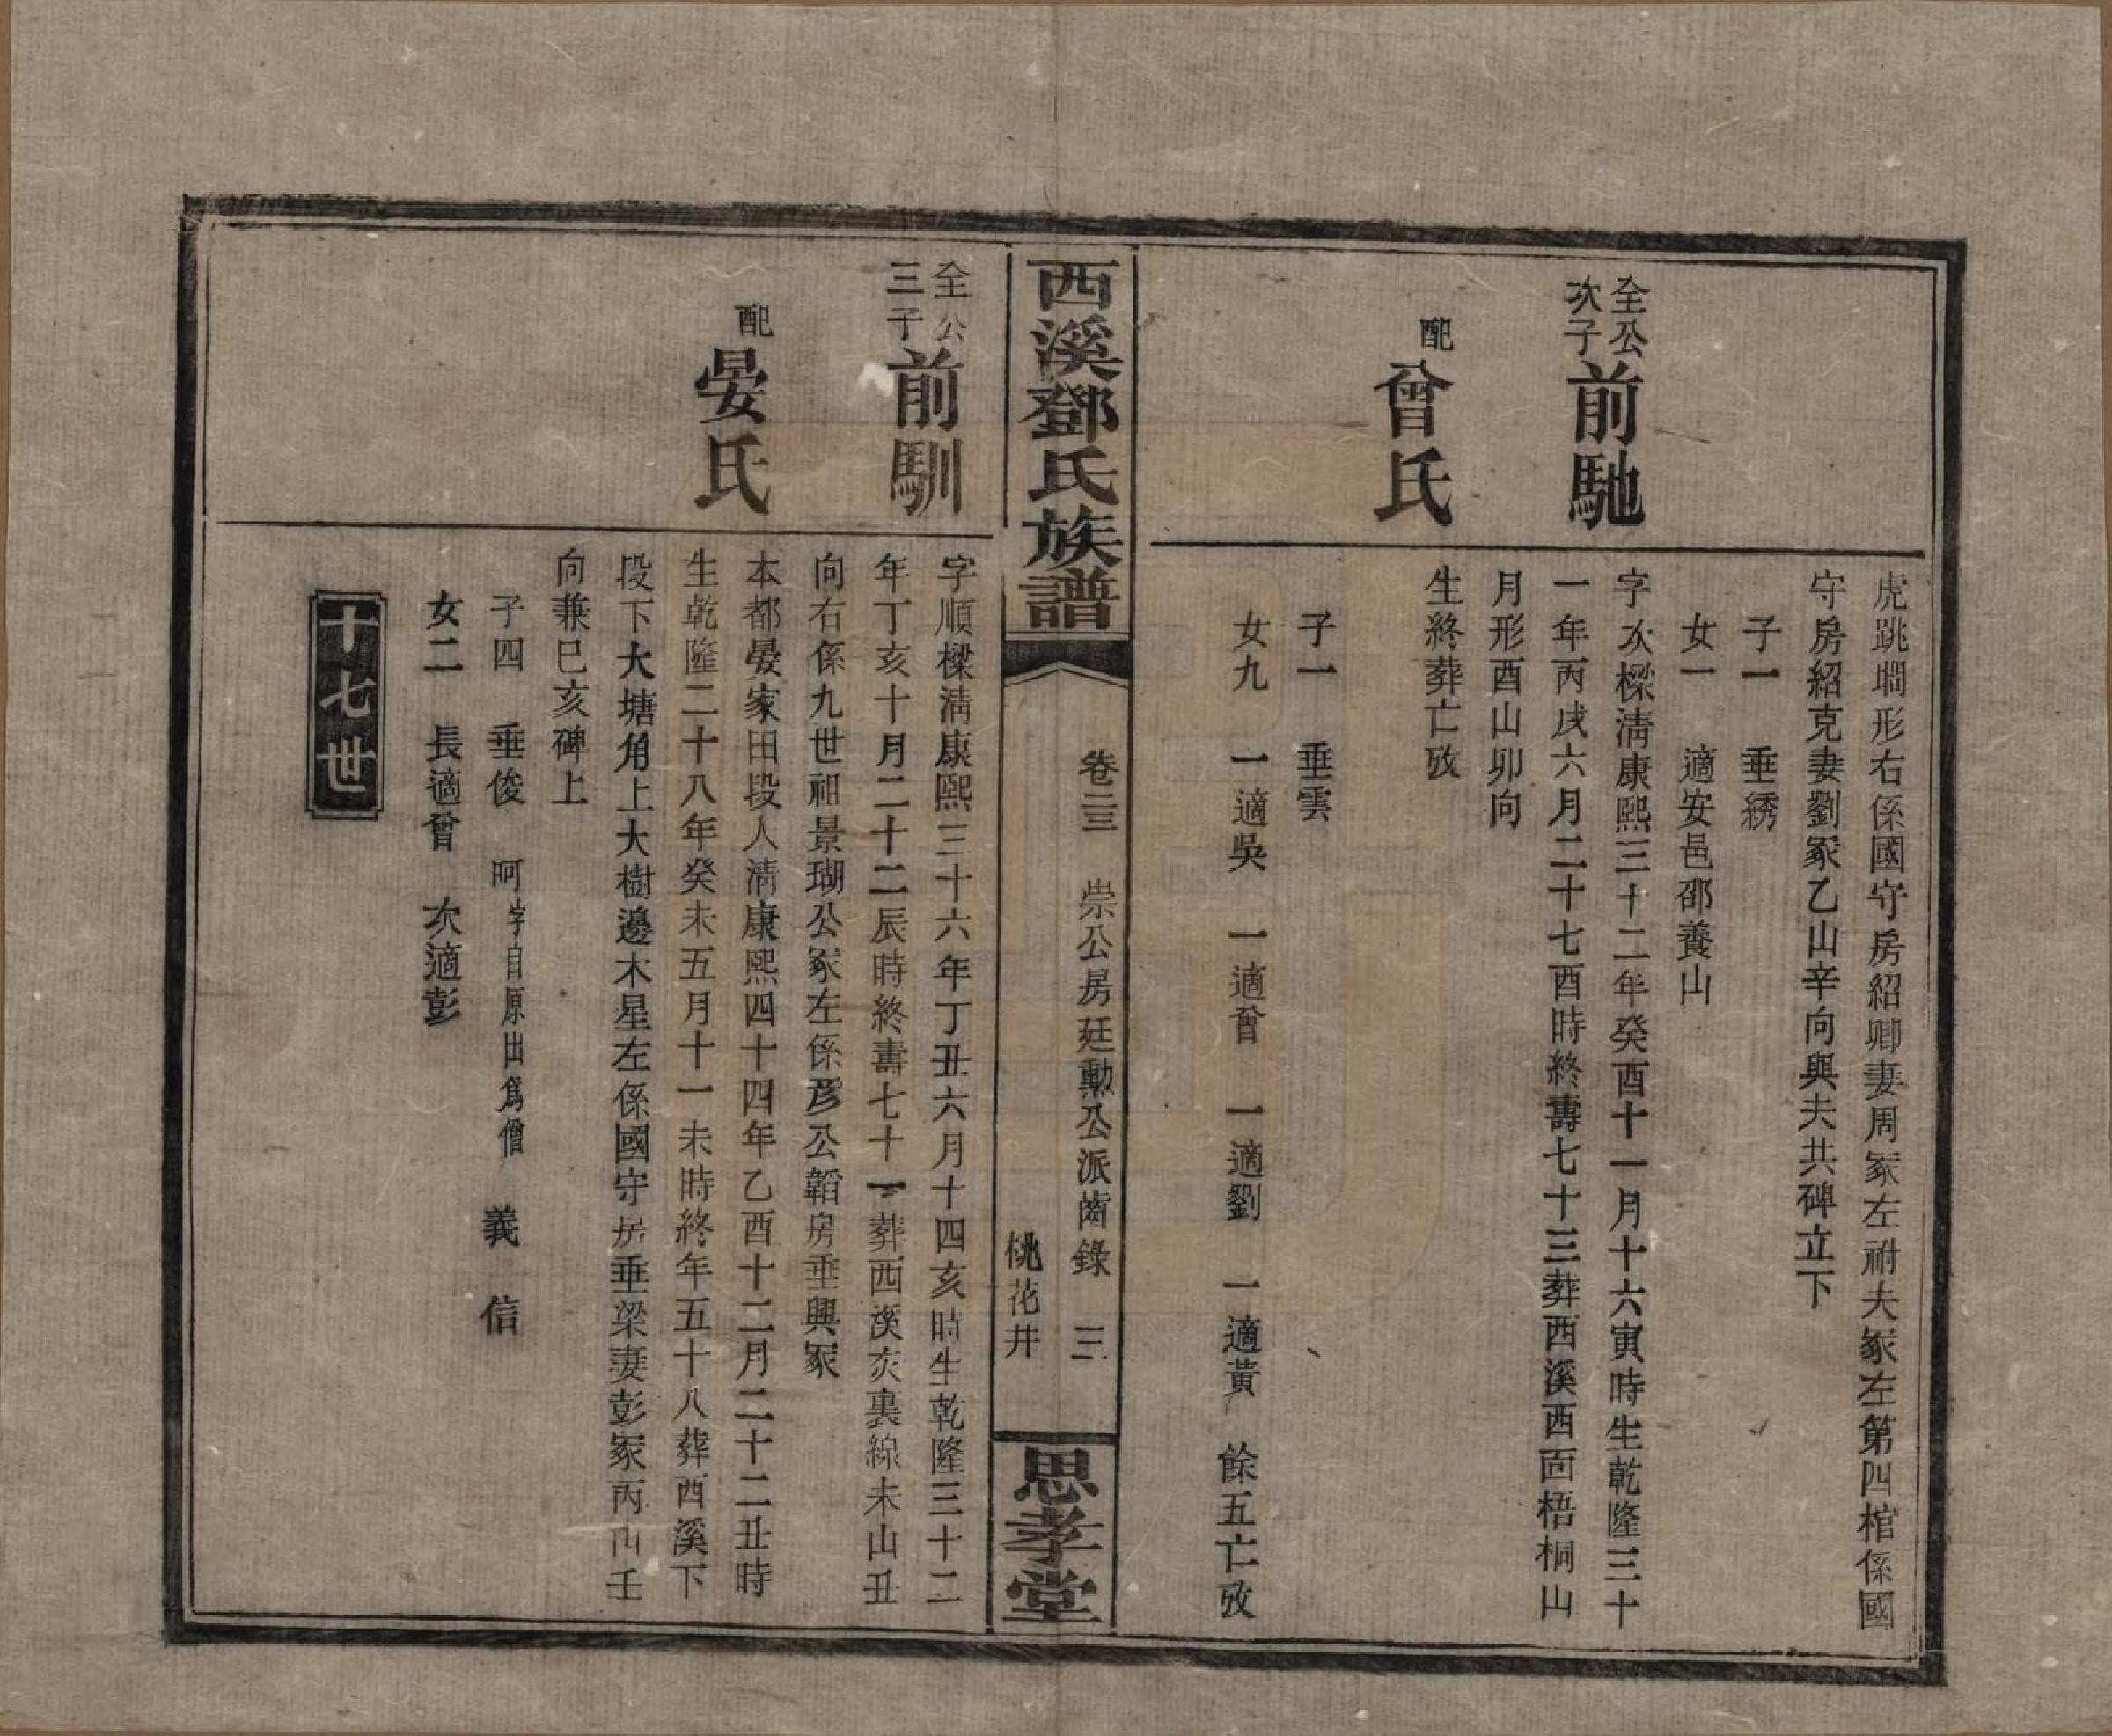 虎跳墹形右係國守房紹卿妻周冢左祔夫冢左第四棺係國
守房紹克妻劉冢乙山辛向與夫共碑立下
子一　垂綉
女一　適安邑邵養山
全公次子
前馳
字次樑淸康熙三十二年癸酉十一月十六寅時生乾隆三十
一年丙戌六月二十七酉時終壽七十三葬西溪西面梧桐山
月形酉山卯向
配
曾氏
生終葬亡攷
子一　垂雲
女九　一適吳　一適曾　一適劉　一適黃　餘五亡攷
西溪鄧氏族譜
卷二三　崇公房廷勳公派齒錄　三
桃花井
思孝堂
全公三子
前馴
字順樑淸康熙三十六年丁丑六月十四亥時生乾隆三十二
年丁亥十月二十二辰時終壽七十一葬西溪亥裏線未山丑
向右係九世祖景瑚公冢左係彦公韜房垂興冢
配
晏氏
本都晏家田段人淸康熙四十四年乙酉十二月二十二丑時
生乾隆二十八年癸未五月十一未時終年五十八葬西溪下
段下大塘角上大樹邊木星左係國守房垂梁妻彭冢丙山壬
向兼巳亥碑上
子四　垂俊　呵字自原出爲僧　義　信
女二　長適曾　次適彭
十七世